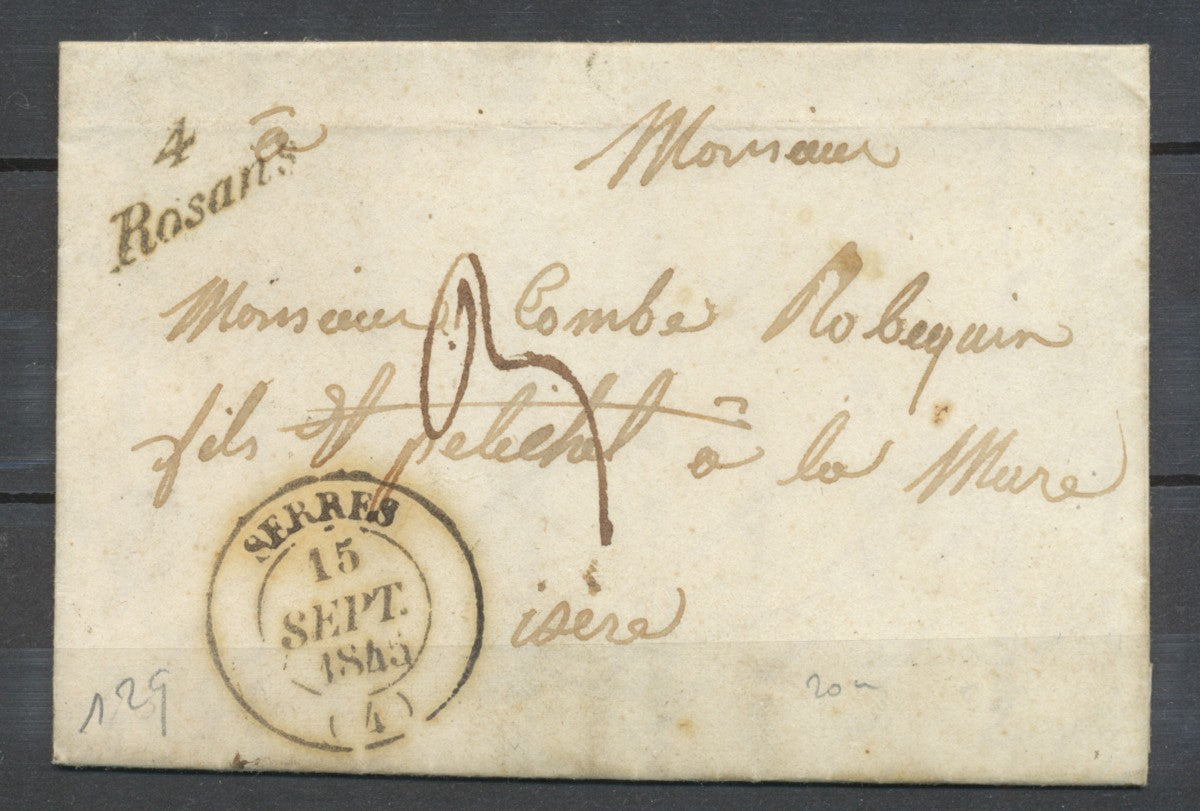 4
Rosans
à Monsieur
Monsieur Combe Robequin
fils et à la Mure
isère
SERRES
15
SEPT.
1845
(4)
129